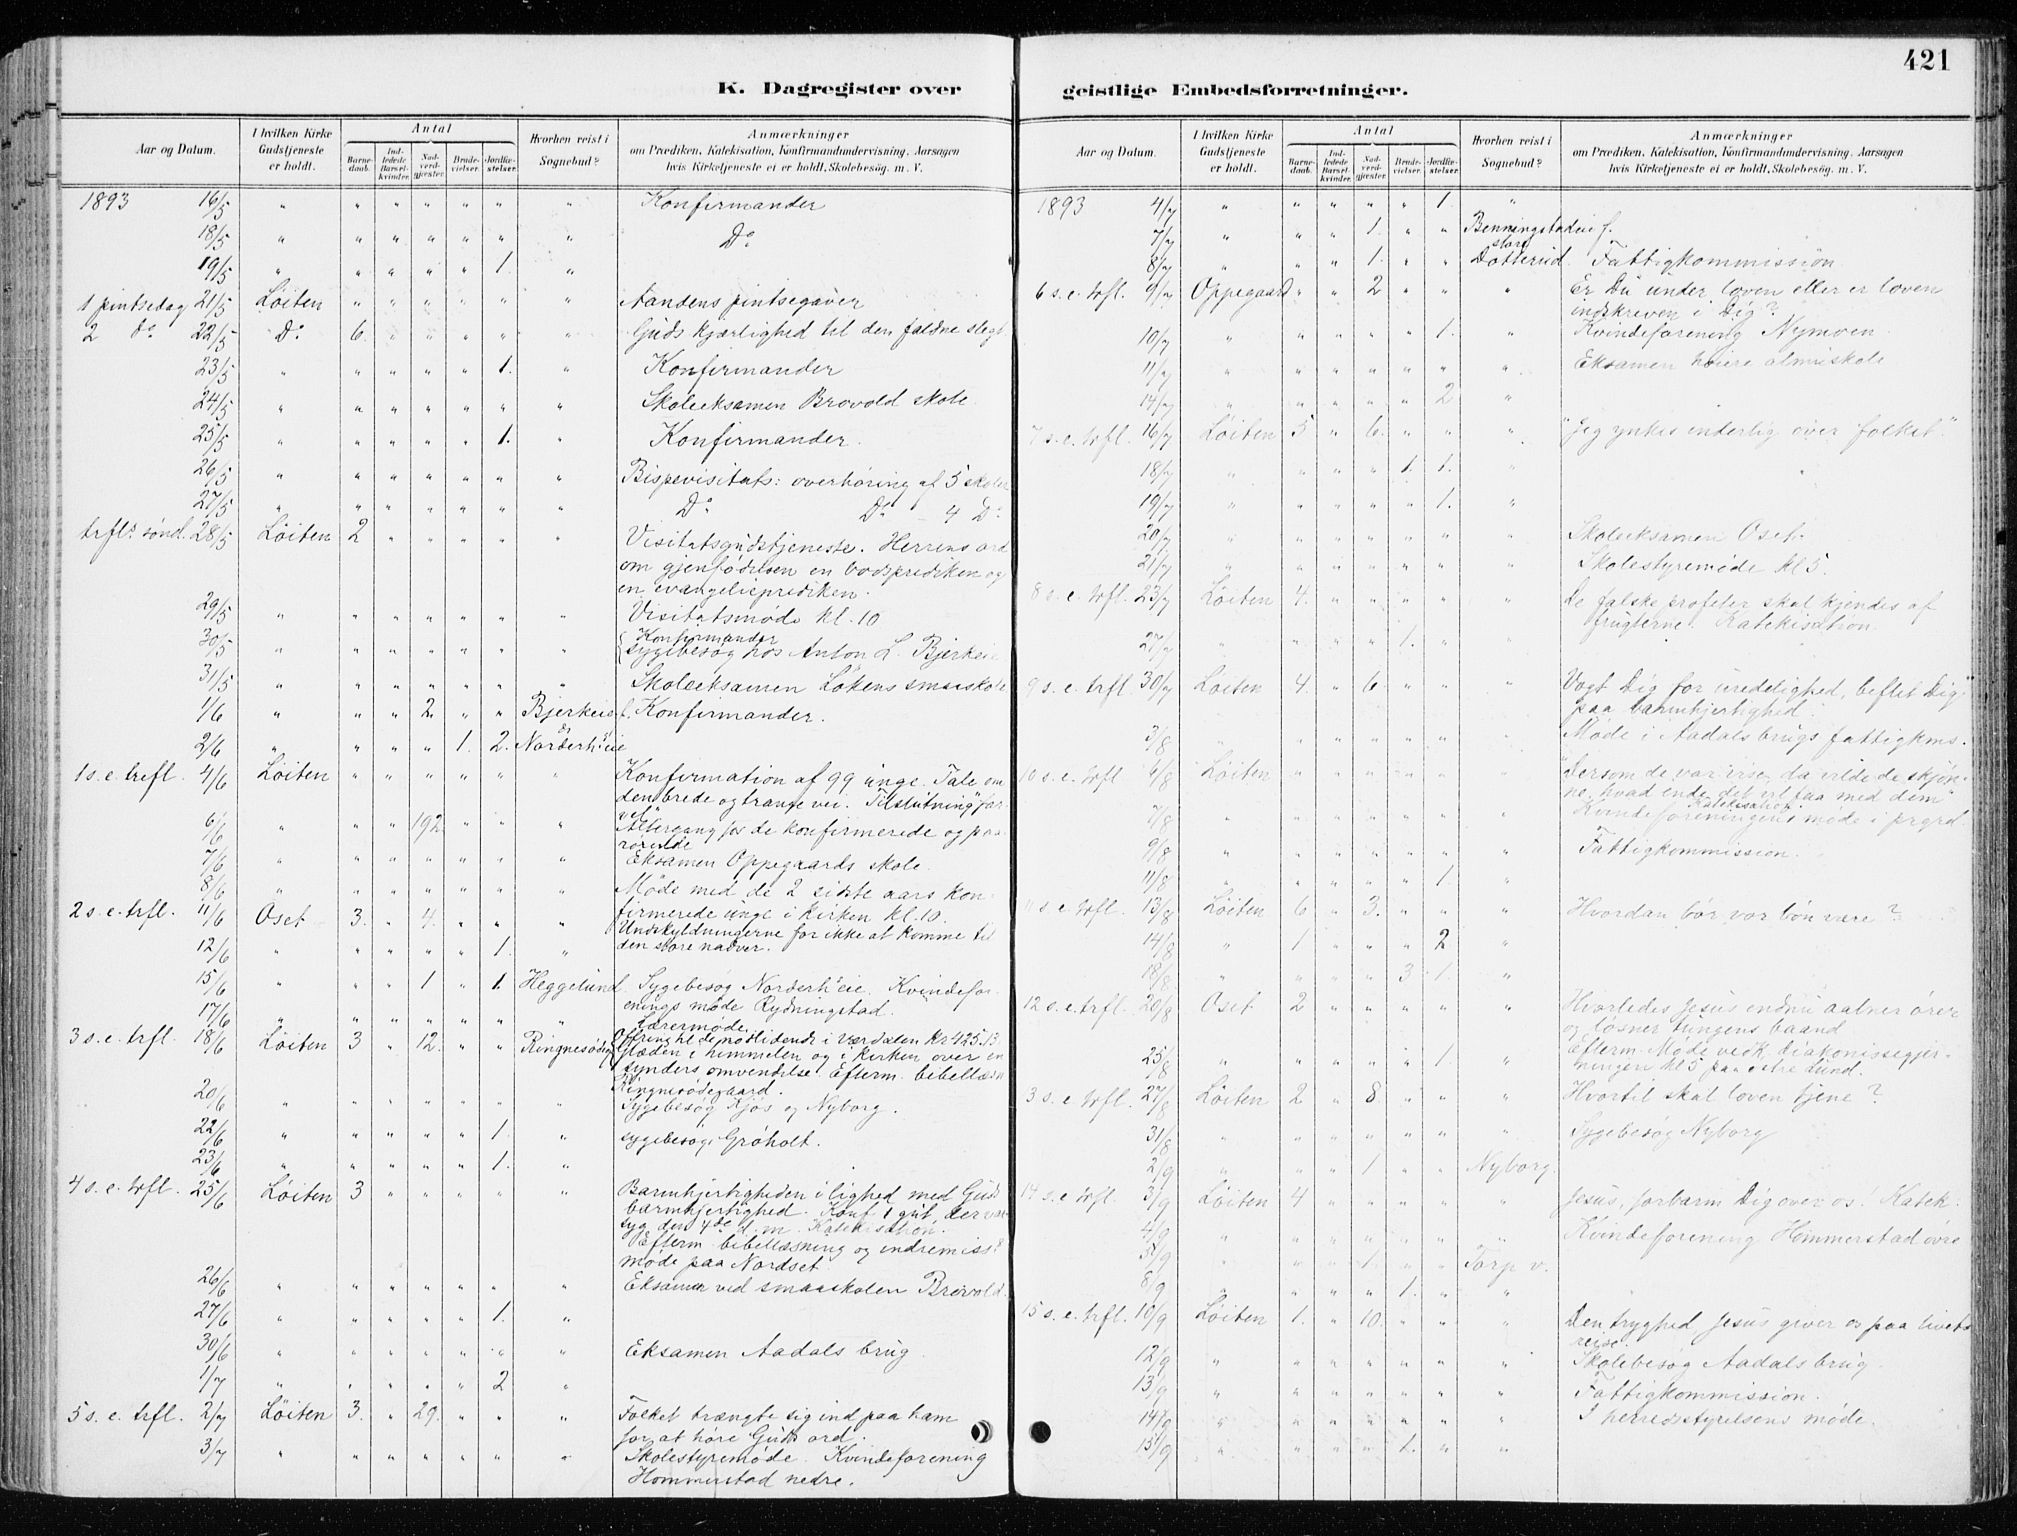 421
K. Dagregister over geistlige Embedsforretninger.
Aar og Datum. I hvilken Kirke Gudstjeneste er holdt. Antal Barnedaab. Indledede Barselkvinder. Nadverdgjæster. Brudevielser. Jordfæstelser. Hvorhen reist i Sognebud? Anmærkninger om Prædiken, Katekisation, Konfirmandundervisning, Aarsagen hvis Kirketjeneste ei er holdt, Skolebesøg. m. V.
1893 16/5 " " " " " " " Konfirmander
18/5 " " " " " " " Do
19/5 " " " " " 1. "
1 pintsedag 21/5 Løiten " " " " " " Aandens pintsegaver
2 Do 22/5 Do 6. " " " " " Guds kjærlighed til den faldne slegt
23/5 " " " " " 1. " Konfirmander
24/5 " " " " " " " Skoleeksamen Brovold skole
25/5 " " " " " 1. " Konfirmander.
26/5 " " " " " " " Bispevisitats: overhøring af 5 skoler
27/5 " " " " " " " Do Do - 4 Do
trfl. sønd. 28/5 Løiten 2 " " " " " Visitatsgudstjeneste. Herrens ord
om gjenfødelsen en bodsprediken og
en evangelieprediken.
29/5 " " " " " " " Visitatsmøde kl. 10
30/5 " " " " " " " Konfirmander
sygebesøg hos Anton L. Bjerkeie
31/5 " " " " " " " Skoleeksamen Løkens smaaskole
1/6 " " " 2. " " Bjerkeie f. Konfirmander.
2/6 " " " " 1. 2. Norderh. eie
1 s. e. trefl. 4/6 Løiten " " " " " " Konfirmation af 99 unge. Tale om
den brede og trange vei. Tilslutning "far-
vel"
6/6 " " " 192. " " " Altergang for de konfirmerede og paa-
rørende
7/6 " " " " " " " Eksamen Oppegaards skole.
8/6 " " " " " " " Møde med de 2 sidste aars kon-
firmerede unge i kirken kl. 10.
2 s. e. trfl. 11/6 Oset 3. " 4. " " " Undskyldningerne for ikke at komme til
den store nadver.
12/6 " " " " " 1. "
15/6 " " " 1 " 1. Heggelund. Sygebesøg Norderh. eie. Kvindefor-
enings møde Rydningstad.
17/6 " " " " " " " Lærermøde.
3 s. e. trfl. 18/6 Løiten 3 " 12. " " Ringnesødeg. Ofring til de nødlidende i Værdalen Kr 425.13
Glæden i himmelen og i kirken over en
synders omvendelse. Efterm. bibellæsn
Ringnesødegaard.
20/6 " " " " " " " Sygebesøg Kjøs og Nyborg.
22/6 " " " " " 1. " sygebesøg Grøholt.
23/6 " " " " " 1. "
4 s. e. trfl. 25/6 Løiten 3 " " " " " Barmhjertigheden i lighed med Guds
barmhjertighed. Konf 1 gut der var
syg den 4de d. m. Katekisation.
Efterm bibellæsning og indremiss.
møde paa Nordset
26/6 " " " " " " " Eksamen ved smaaskolen Breivold.
27/6 " " " " " 1. "
30/6 " " " " " " " Eksamen Aadals brug
1/7 " " " " " 2 "
5 s. e. trfl. 2/7 Løiten 3. " 29. " " " Folket trængte sig ind paa ham
for at høre Guds ord.
3/7 " " " " " " " Skolestyremøde. Kvindeforening
Hommerstad nedre.
Aar og Datum. I hvilken Kirke Gudstjeneste er holdt. Antal Barnedaab. Indledede Barselkvinder. Nadverdgjæster. Brudevielser. Jordfæstelser. Hvorhen reist i Sognebud? Anmærkninger om Prædiken, Katekisation, Konfirmandundervisning, Aarsagen hvis Kirketjeneste ei er holdt, Skolebesøg. m. V.
1893 4/7 " " " " " 1. "
7/7 " " " 1. " " Benningstadeie f.
8/7 " " " 1. " " store Dotterud. Fattigkommission
6 s. e. trfl. 9/7 Oppegaard " " 2 " " " Er Du under loven eller er loven
indskreven i Dig?
10/7 " " " " " 1. " Kvindeforening Nymoen
11/7 " " " " " " " Eksamen høiere almueskole
14/7 " " " " " 2 "
7 s. e. trfl. 16/7 Løiten 5 " 6. " " " "Jeg ynkes inderlig over folket."
18/7 " " " " 1. 1. "
19/7 " " " " " 1. "
20/7 " " " " " " " Skoleeksamen Oset.
21/7 " " " " " " " Skolestyremøde kl 5.
8 s. e. trfl. 23/7 Løiten 4. " " " " " De falske profeter skal kjendes af
frugterne. Katekisation.
27/7 " " " " 1. " "
9 s. e. trfl. 30/7 Løiten 4. " 6. " " " Vogt Dig for uredelighed, beflit Dig
paa barmhjertighed.
3/8 " " " " " " " Møde i Aadals brugs fattigkms.
10 s. e. trfl 6/8 Løiten " " " " " " "Dersom de var vise, da vilde de skjøn-
ne, hvad ende det vil faa med dem"
Katekisation.
7/8 " " " " " " " Kvindeforeningens møde i prgrd.
9/8 " " " " " " " Fattigkommission.
11/8 " " " " " 1. "
11 s. e. trfl. 13/8 Løiten 6 " 3. " " " Hvordan bør vor bøn være?
14/8 " 1 " " " 2 "
18/8 " " " " 3 1. "
12 s. e. trfl. 20/8 Oset 2 " " " " " Hvorledes Jesus endnu aabner ører
og løsner tungens baand
Efterm. Møde vedk. diakonissegjer-
25/8 " " " " " 1. " ningen kl 5 paa østre Lund.
3 s. e. trfl. 27/8 Løiten 2 " 8. " " " Hvortil skal loven tjene?
31/8 " " " " " " " Sygebesøg Nyborg
2/9 " " " 1 " " Nyborg.
14 s. e. trfl. 3/9 Løiten 4 " " " " " Jesus, forbarm Dig over os! Katek.
4/9 " " " " " " " Kvindeforening Hommerstad øvre
5/9 " " " 1. " " Torp v.
8/9 " " " " 1. " "
15 s. e. trfl. 10/9 Løiten 1. " 10. " " " Den tryghed Jesus giver os paa livets
reise.
12/9 " " " " " " " Skolebesøg Aadals brug.
13/9 " " " " " " " Fattigkommission.
14/9 " " " " " " " I herredsstyrelsens møde.
15/9 " " " " 1. " "